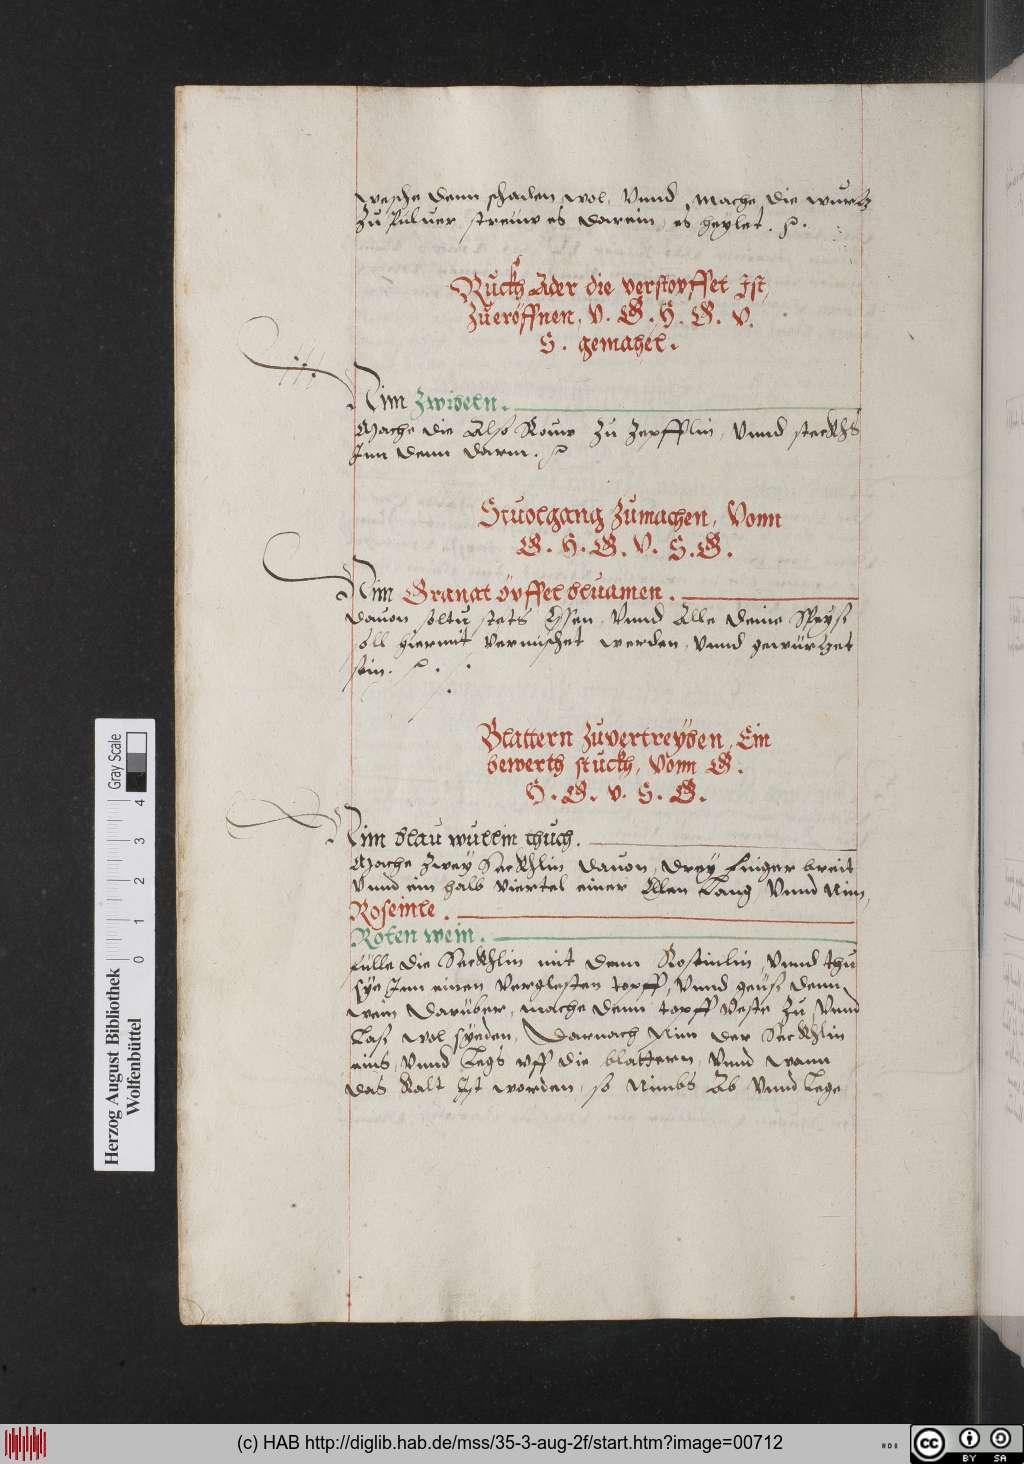 wesche denn schaden wol, Vnnd mache die wurtz
zu Puluer streuw es darein, es heylet.
Ruckh Ader die verstopffet Ist,
zueröffnen, V. G. H. G. V.
S. gemahel.
Nim Zwibeln.
Mache die Also Rouw zu zepfflin, Vnnd steckhs
Inn denn darm.
Stuolgang zumachen, Vonn
G. H. G. V. S. G.
Nim Granat öpffel bluomen.
dauon soltu stets Essen, Vnnd Alle deine Speyß
soll hiermit vermischet werden, Vnnd gewürtzet
sein.
Blattern zuvertreyben, Ein
bewerth stuckh, Vonn G.
H. G. V. S. G.
Nim blau wullin thuch.
Mache zwey Seckhlin dauon, drey finger breit
Vnnd ein halb viertel einer Elen Lang, Vnnd Nim,
Roseinle.
Roten wein.
fülle die Seckhlin mit denn Rosinlin, Vnnd thu
sye Inn einen verglesten topff, Vnnd geüß denn
wein darüber, mache denn topff veste zu, Vnnd
Laß wol syeden, Darnach Nim der Seckhlin
eins, Vnnd Legs vff die blattern, Vnnd wann
das Kalt Ist worden, so Nimbs Ab Vnnd Lege
Herzog August Bibliothek
Wolfenbüttel
0 1 2 3 4
Gray Scale
(c) HAB http://diglib.hab.de/mss/35-3-aug-2f/start.htm?image=00712
cc BY SA